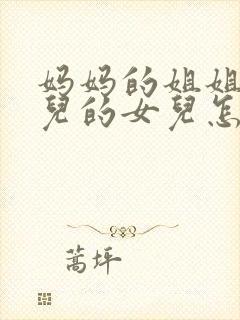 妈妈的姐姐
兒的女兒怎
蒿坪